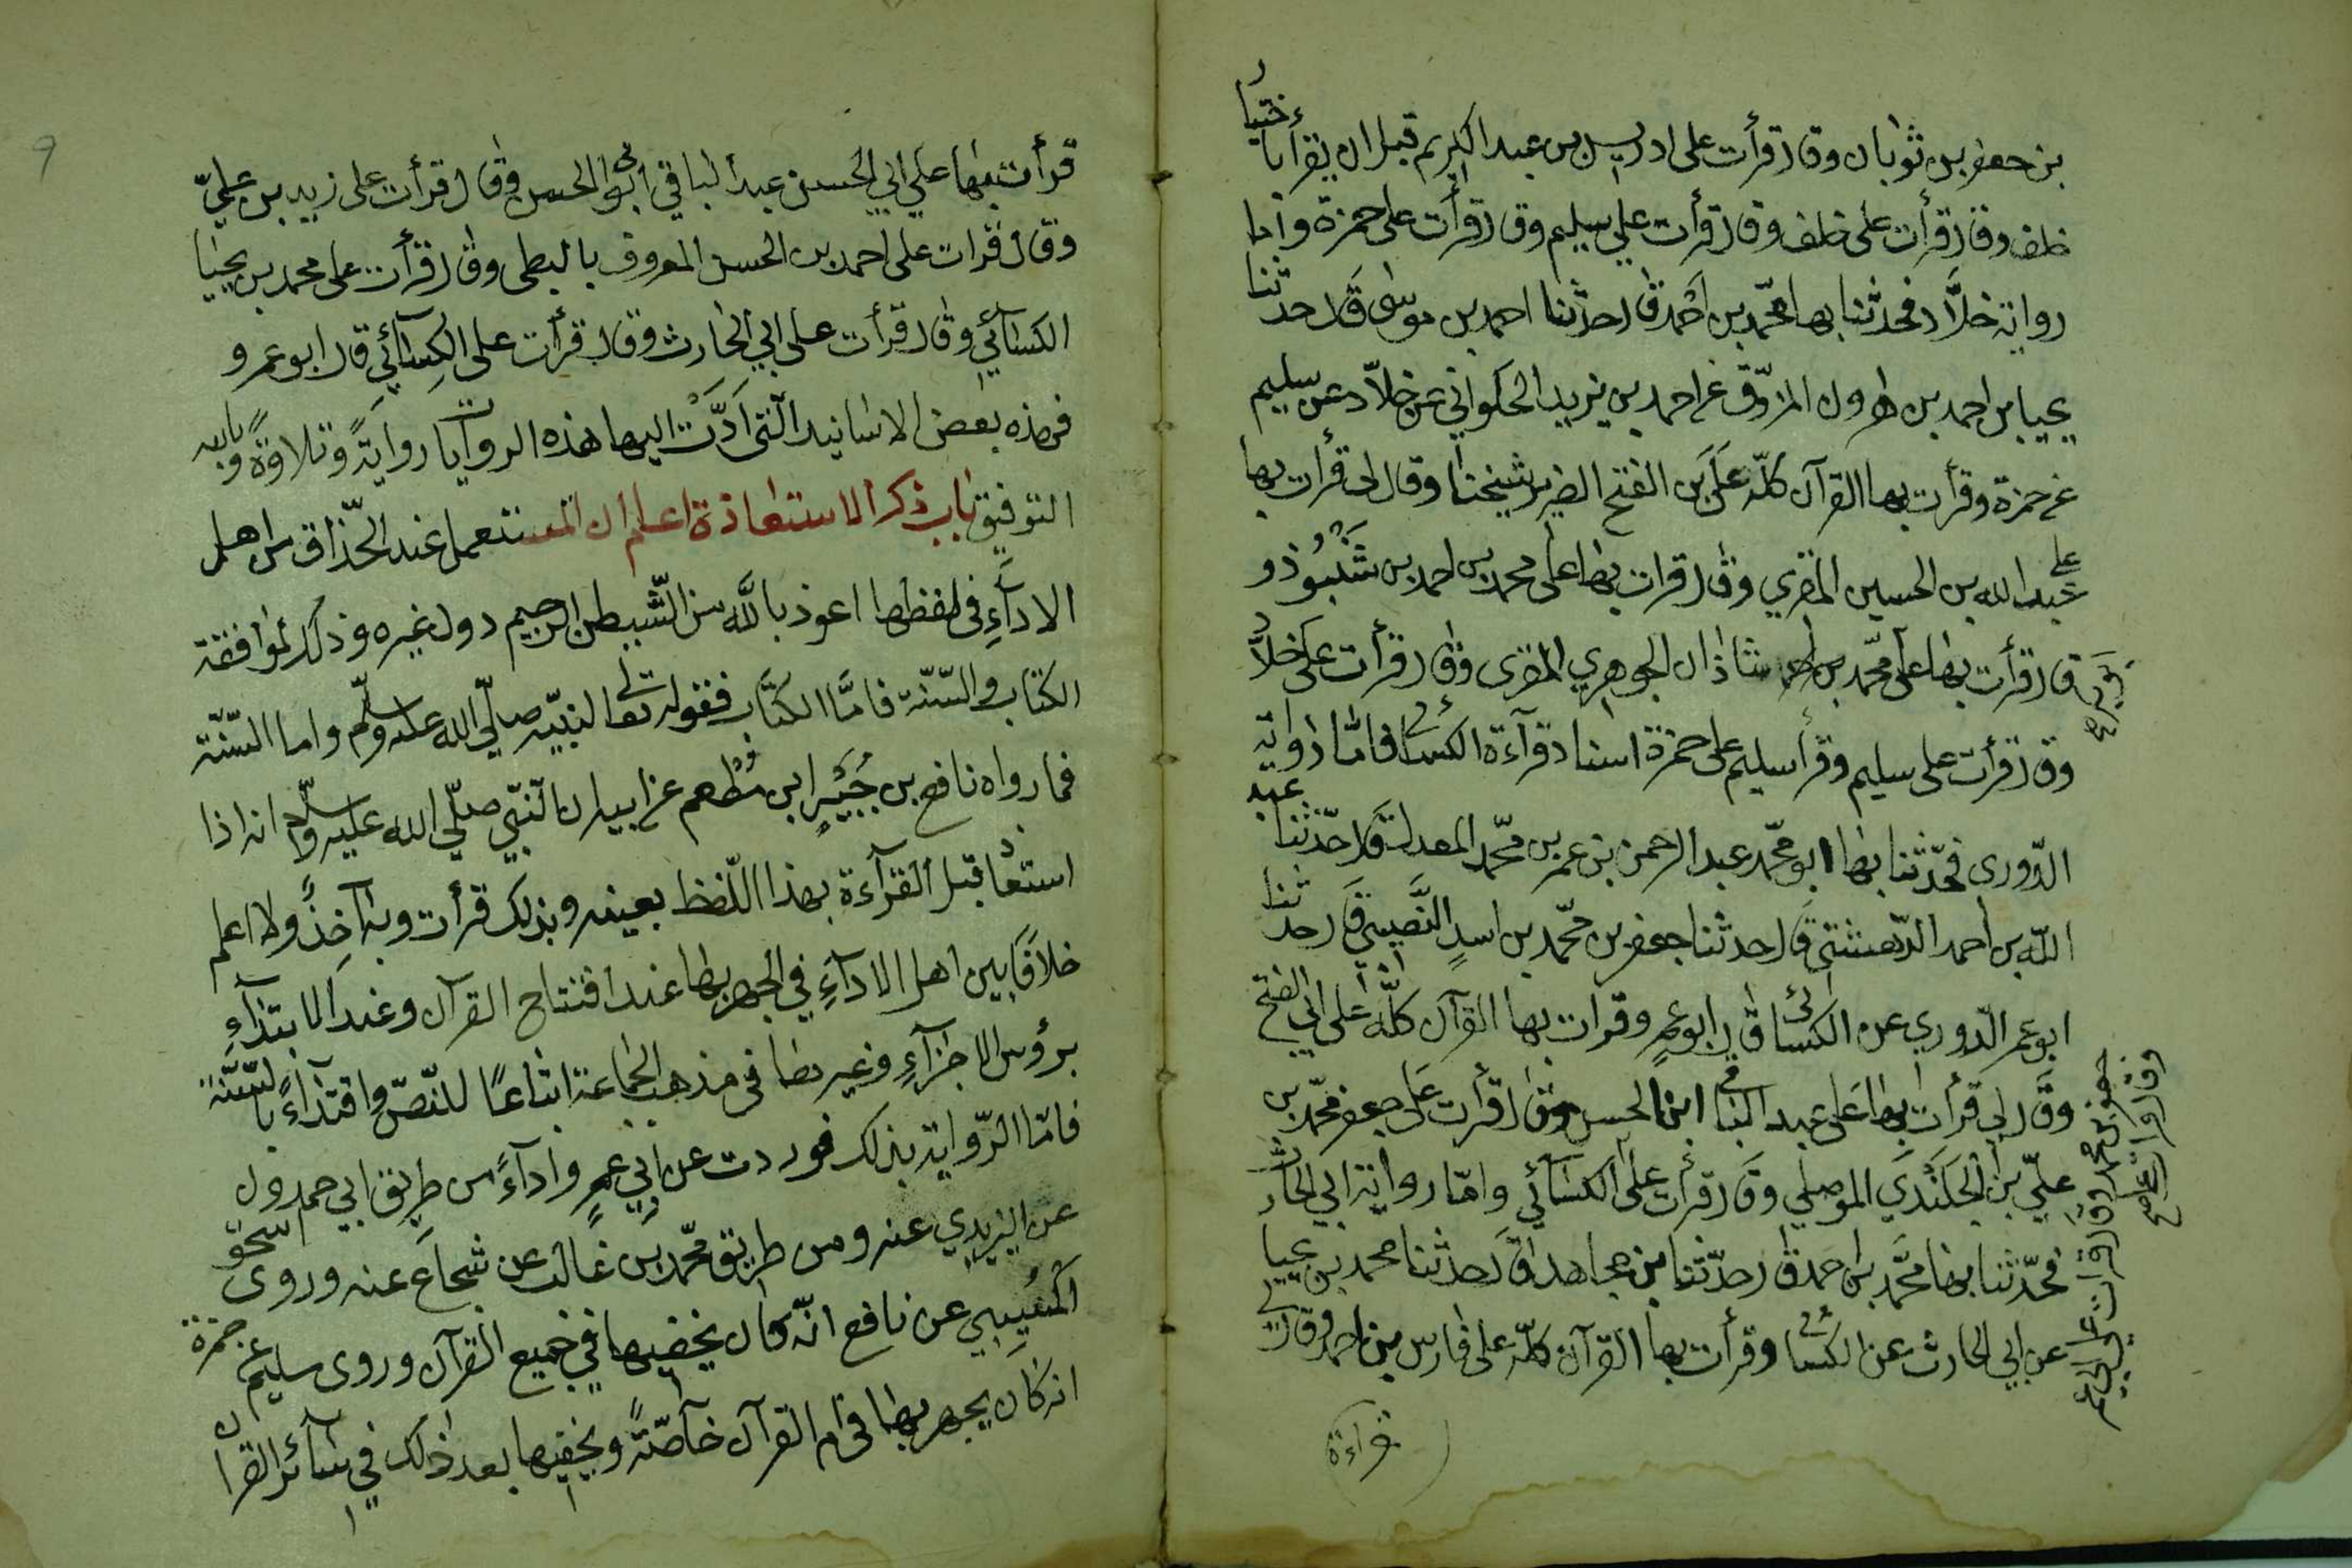 بن جعفر بن ثوبان وقال قرأت على ادريس بن عبد الكريم قبل ان يقرأ باختيار
خلف وقال قرأت على خلف وقال قرأت علي سليم وقال قرأت على حمزة وأما
رواية خلاّد فحدثنا بها محمّد بن احمد قال حدثنا احمد بن موسى قال حدثنا
يحيا بن احمد بن هرون المزوّق عن احمد بن يزيد الحلواني عن خلاّد عن سليم
عن حمزة وقرأت بها القرآن كلّه على الفتح الضرير شيخنا وقال لى قرأت بها
على عبد الله بن الحسين المقري وقال قرات بها على محمد بن احمد بن شَنَبُوذ و
قال قرأت بها على محمّد بن شاذان الجوهري المقرى وقال قرأت على خلاّد
وقال قرأت على سليم وقرأ سليم على حمزة اسناد قرآءة الكسائي فامّا رواية
الدّورى فحّدثنا بها ابو محمّد عبد الرحمن بن عمر بن محّمد المعدل قال حدّثنا عبد
اللّه بن احمد الدّمشقي قال حدثنا جعفر بن محّمد بن اسدٍ النَّصيبي قال حدثنا
ابو عمر الدّوري عن الكسائى قال ابو عمرٍو وقرات بها القرآن كلَّه على ابي الفتح
وقال لي قرأت بها على عبد الباقي ابن الحسن وقال قرأت على محّمد بن
علىّ بن الجلندي الموصلي وقال قرأت على الكسآئي وامّا رواية ابي الحارث
فحّدثنا بها محَّمد بن احمد قال حدّثنا بن مجاهد قال حدثنا محمد بن يحيا
عن ابي الحارث عن الكسائي وقرأت بها القرآن كلّه على فارس بن احمد وقال لي
قراءة
قرأت بها علي ابي الحسن عبد الباقي وقال قرأت على زيد بن عليّ
وقال قرات على احمد بن الحسن المعروف بالبطى وقال قرأت على محمد بن يحيا
الكسآئي وقال قرأت على ابي الحارث وقال قرأت على الكِسآئي قال ابو عمرو
فهذه بعض الاسانيد الّتى ادَّت اليها هذه الروايات روايةً وتلاوةً وبالله
التوفيق باب ذكر الاستعاذة اعلم ان المستعمل عند الحّذاق من اهل
الادآءِ فى لفظها اعوذ باللَّه من الشّيطن الرجيم دون غيره وذلك لموافقة
الكتاب والسّنّة فامَّا الكتَاب فقوله تعالى لنبيّه صلّي الله عليه وسلّم واما السّنّة
فما رواه نافع بن جُبَيْرٍ ابن مُطْعم عن ابيه ان النّبي صلّي الله عليه وسلّم انه اذا
استعاذ قبل القرآءة بهذا اللّفظ بعينه وبذلك قرأت وبه آخِذُ ولا اعلم
خلافًا بين اهل الادآءِ في الجهر بها عند افتتاح القرآن وعند الابتدآءِ
برؤس الاجزآءِ وغيرها فى مذهب الجماعة اتباعًا للنّصّ واقتدآءً بالسّنّة
فامّا الرّواية بذلك فوردت عن ابي عمرٍو ادآءً من طريق ابي حمدون
عن اليزيدي عنه ومن طريق محّمد بن غالب عن شجاَع عنه وروى اسحق
المُسَيِبي عن نافع انّه كان يخفيها في جميع القرآن وروى سليم عن حمزة
انه كان يجهر بها فى ام القرآن خآصّةً ويخفيها بعد ذلك في سآئر القرآن